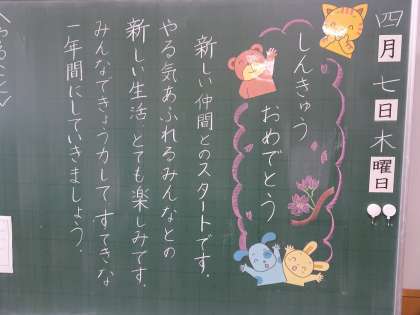 四月七日木曜日
しんきゅう
おめでとう
新しい仲間とのスタートです。
やる気あふれるみんなとの
新しい生活、とても楽しみです。
みんなできょう力して、すてきな
一年間にしていきましょう。